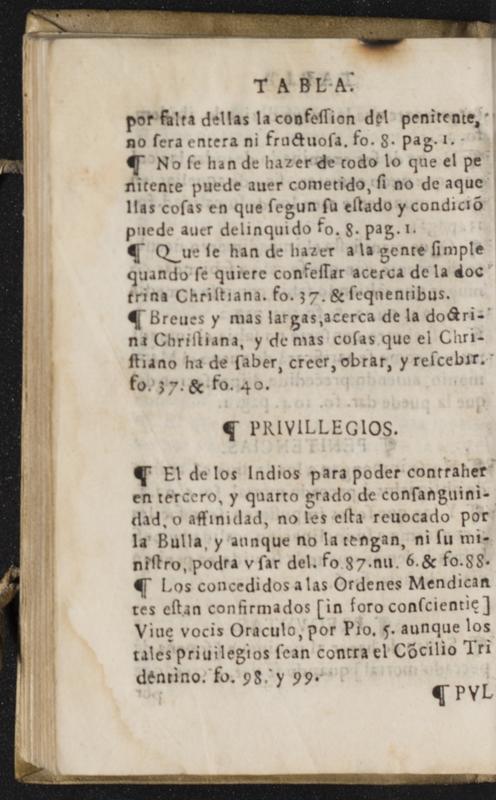 TABLA.
por falta dellas la confeſſion del penitente,
no ſera entera ni fructuoſa. fo. 8. pag. 1.
¶ No ſe han de hazer de todo lo que el pe
nitente puede auer cometido, ſi no de aque
llas coſas en que ſegun ſu eſtado y condiciõ
puede auer delinquido fo. 8. pag. 1.
¶ Que ſe han de hazer a la gente ſimple
quando ſe quiere confeſſar acerca de la doc
trina Chriſtiana. fo. 37. & ſequentibus.
¶ Breues y mas largas, acerca de la doctri-
na Chriſtiana, y de mas coſas que el Chri-
ſtiano ha de ſaber, creer, obrar, y reſcebir.
fo. 37. & fo. 40.
¶ PRIVILLEGIOS.
¶ El de los Indios para poder contraher
en tercero, y quarto grado de conſanguini-
dad, o affinidad, no les eſta reuocado por
la Bulla, y aunque no la tengan, ni ſu mi-
niſtro, podra vſar del. fo 87. nu. 6. & fo. 88.
¶ Los concedidos a las Ordenes Mendican
tes eſtan confirmados [in foro conſcientię]
Viuę vocis Oraculo, por Pio. 5. aunque los
tales priuilegios ſean contra el Cõcilio Tri
dentino. fo. 98. y 99.
¶ PVL